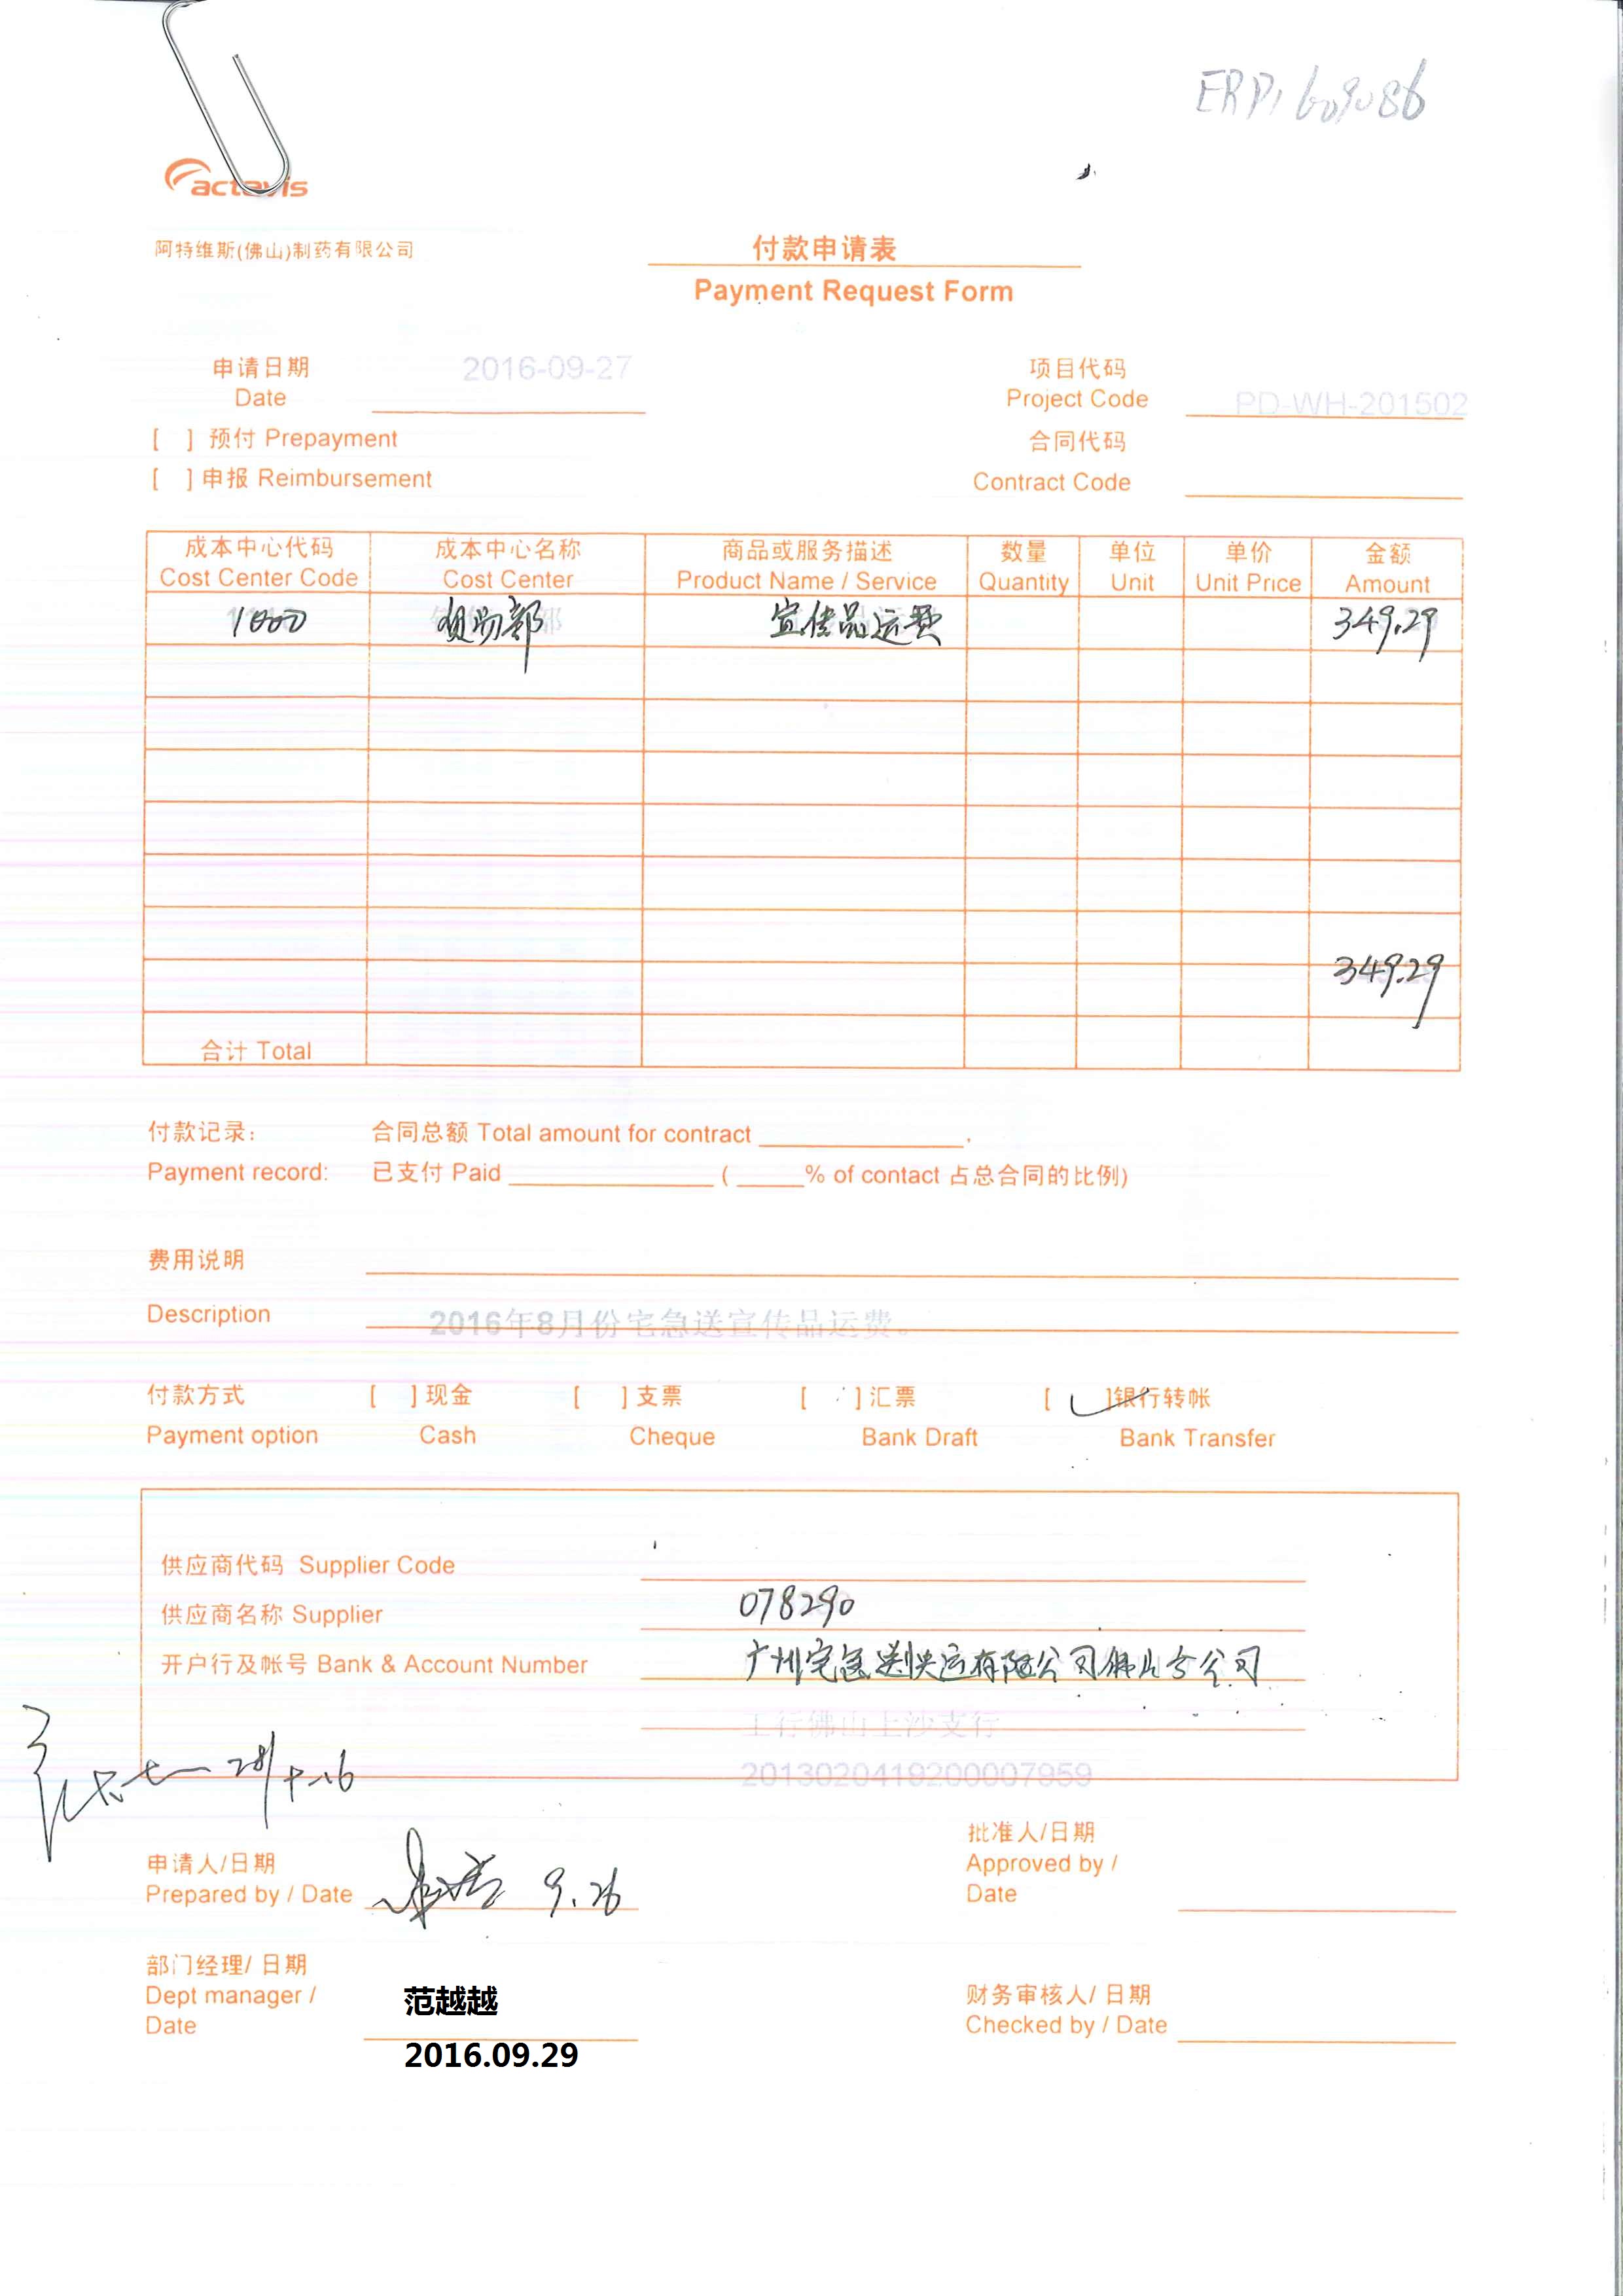 ERP1609086
actavis
阿特维斯(佛山)制药有限公司
付款申请表
Payment Request Form
申请日期 2016-09-27 项目代码
Date Project Code PD-WH-201502
[ ] 预付 Prepayment 合同代码
[ ] 申报 Reimbursement Contract Code
成本中心代码 成本中心名称 商品或服务描述 数量 单位 单价 金额
Cost Center Code Cost Center Product Name / Service Quantity Unit Unit Price Amount
1000 宣传品运费 349.29
349.29
合计 Total
付款记录: 合同总额 Total amount for contract
Payment record: 已支付 Paid ( % of contact 占总合同的比例)
费用说明
Description 2016年8月份宅急送宣传品运费。
付款方式 [ ]现金 [ ]支票 [ ]汇票 [ ]银行转帐
Payment option Cash Cheque Bank Draft Bank Transfer
供应商代码 Supplier Code
078290
供应商名称 Supplier
广州宅急送快运有限公司佛山分公司
开户行及帐号 Bank & Account Number
工行佛山上沙支行
2013020419200007959
申请人/日期 批准人/日期
Prepared by / Date 9.26 Approved by /
Date
部门经理/ 日期 财务审核人/ 日期
Dept manager / 范越越 Checked by / Date
Date 2016.09.29